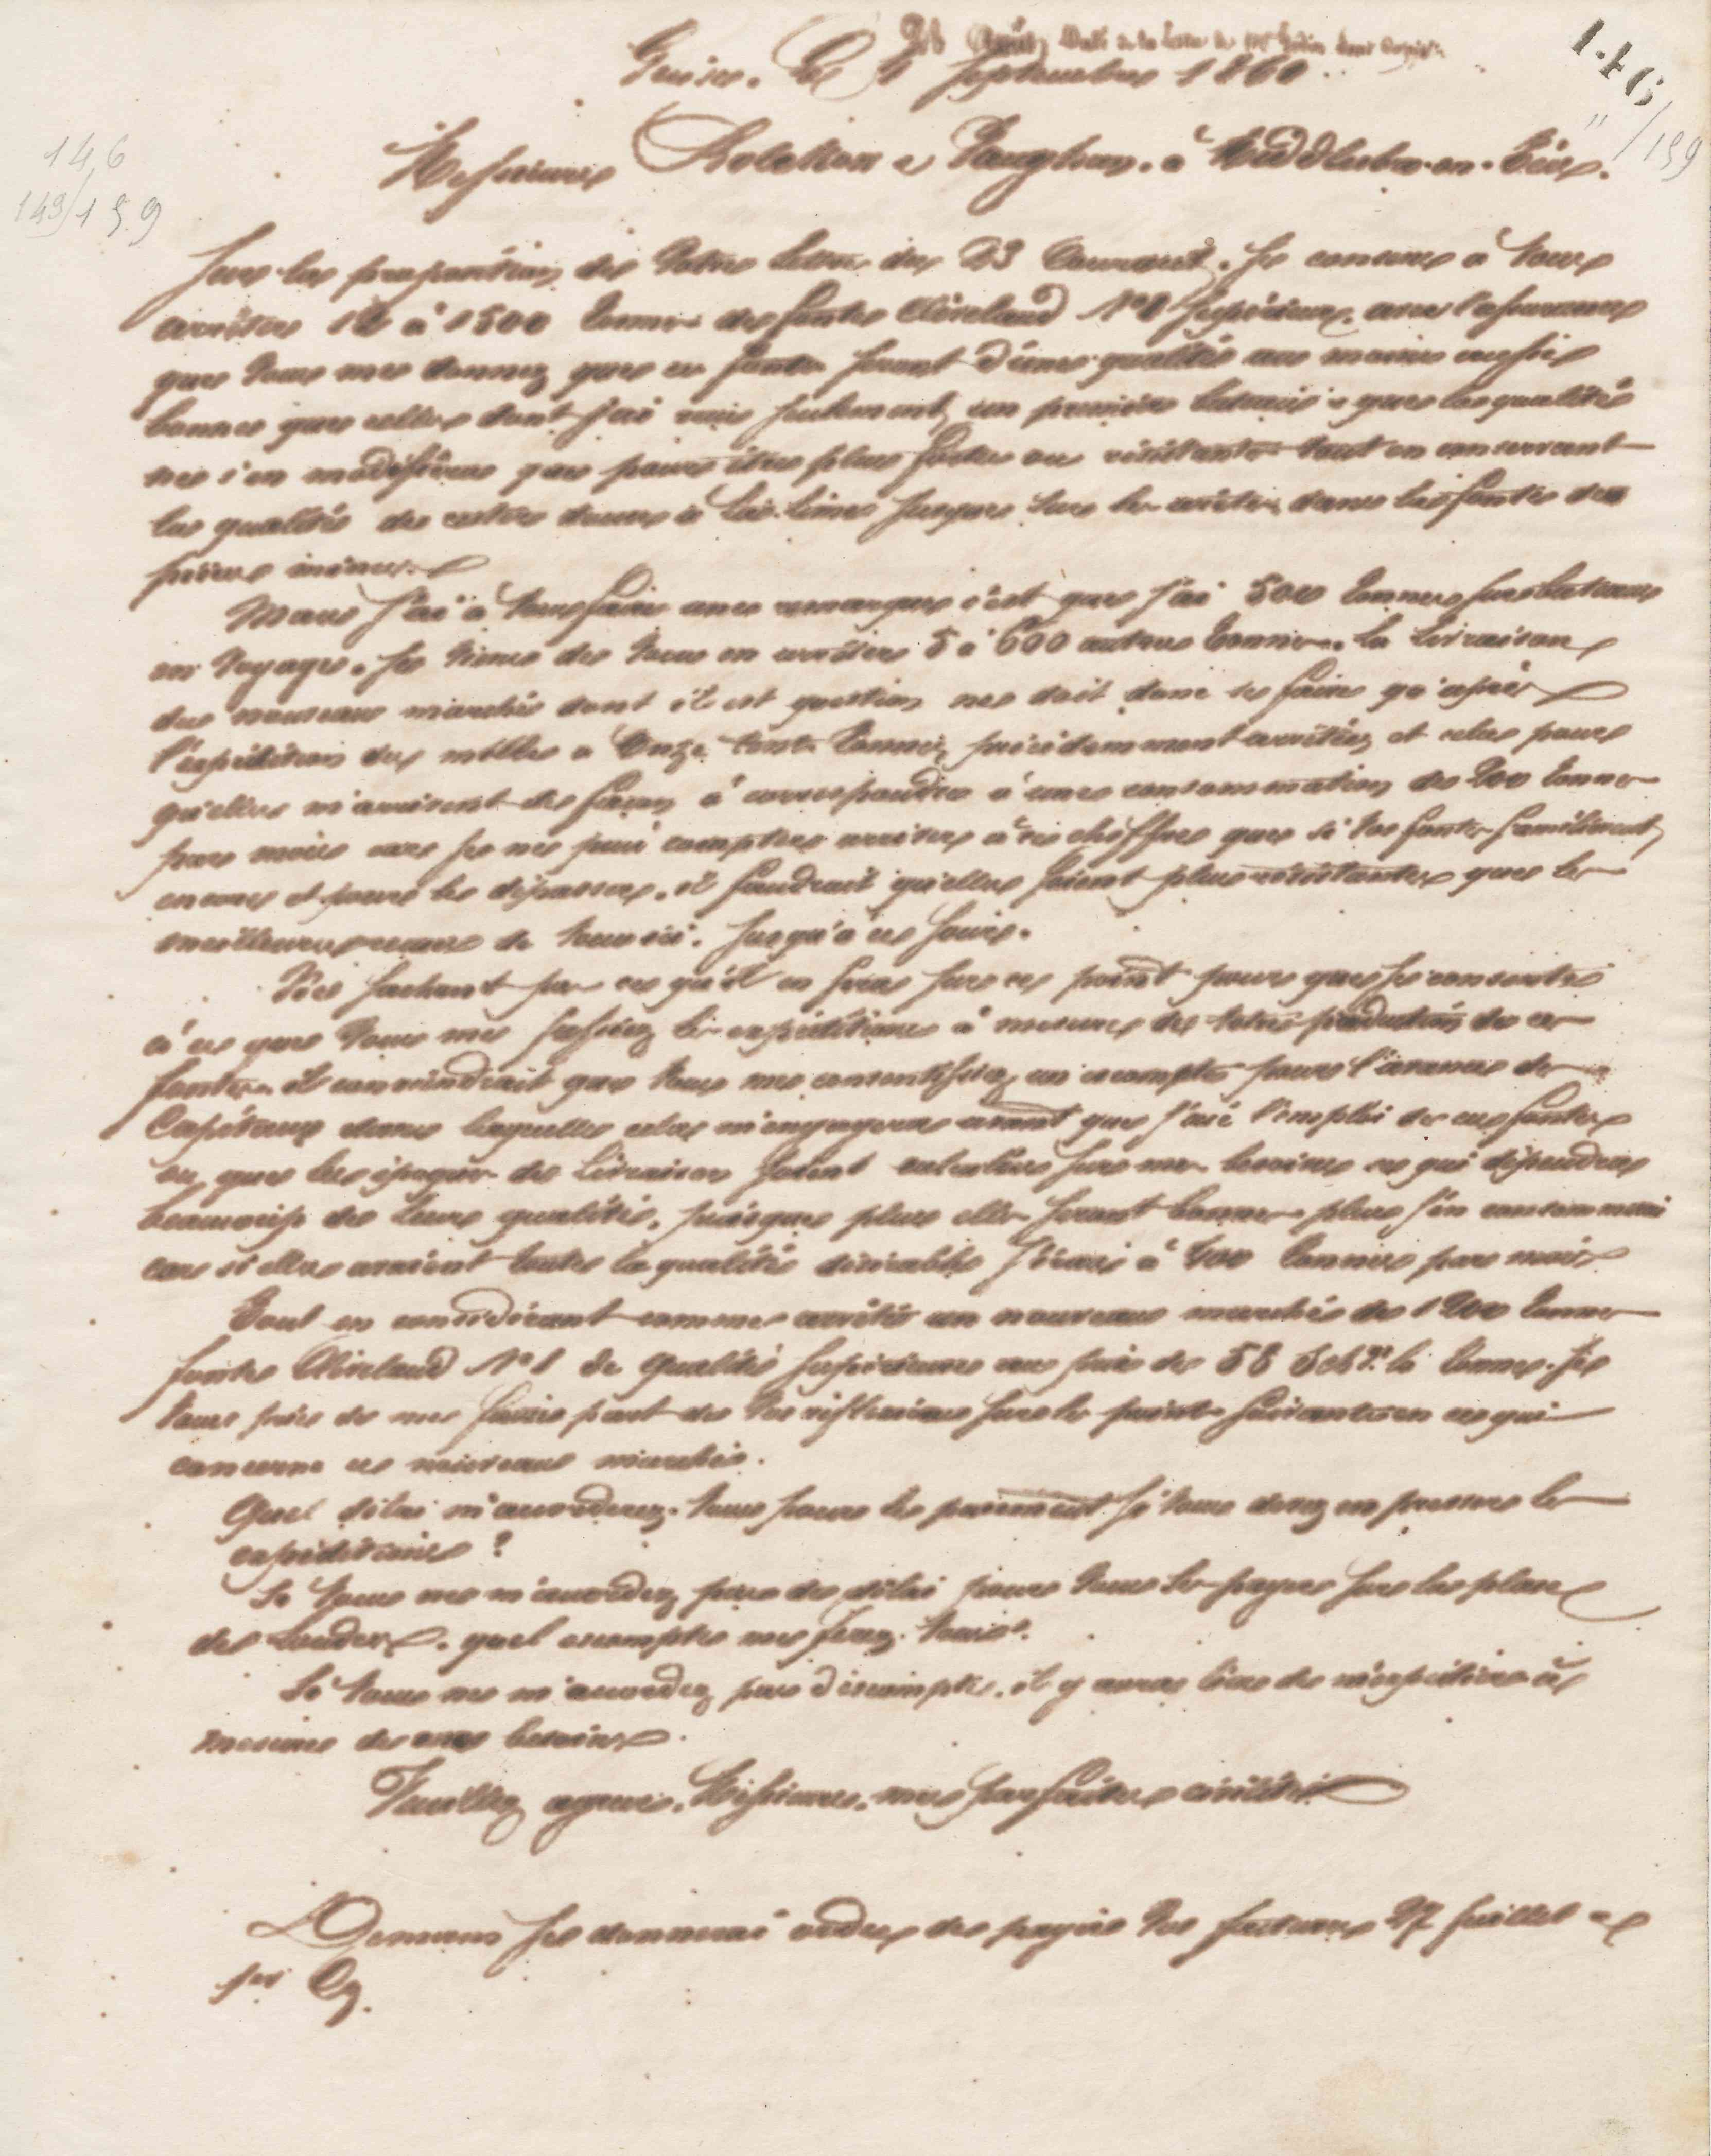 146
/159
146
143/159
28 Août, Date de la lettre de
Guise. Le 1 Septembre 1860.
Messieurs Bolckow & Vaughan. à Middlesbro-on-Tees.
Sur les propositions de votre lettre du 23 Courant. Je consens à vous
arrêter 12 à 1500 tonnes de fontes Cliveland N°1 Supérieure, avec l'assurance
que vous me donnez que ces fontes seront d'une qualité au moins aussi
bonnes que celles dont j'ai reçu seulement un premier bateau & que les qualités
ne s'en modifieront que pour être plus fortes ou résistantes tout en conservant
les qualités de rester douces à la lime jusque sur les arêtes, dans les fontes de
pièces minces.
Mais j'ai à vous faire une remarque c'est que j'ai 500 tonnes sur bateaux
en voyage. Je viens de vous en arrêter 5 à 600 autres tonnes. la livraison
du nouveau marché dont il est question ne doit donc se faire qu'après
l'expédition des mille à Onze Cents tonnes précédemment arrêtées et cela pour
qu'elles m'arrivent de façon à correspondre à une consommation de 200 tonnes
par mois car je ne puis compter arriver à ce chiffre que si vos fontes s'améliorent
encore et pour le dépasser, il faudrait qu'elles soient plus résistantes que les
meilleures reçues de vous ici. Jusqu'à ce jour.
Ne sachant pas ce qu'il en sera sur ce point pour que je consente
à ce que vous me fassiez les expéditions à mesure de votre production de ces
fontes il conviendrait que vous me consentissiez un escompte pour l'avance de
Capitaux dans laquelle cela m'engagera avant que j'aie l'emploi de ces fontes
ou que les époques de livraison soient calculées sur mes besoins ce qui dépendra
beaucoup de leurs qualités, puisque plus elles seront bonnes plus j'en consommerai
car si elles avaient toutes les qualités désirables j'irais à 400 tonnes par mois
Tout en considérant comme arrêté un nouveau marché de 1200 tonnes
fontes Cliveland N°1 de qualité supérieure au prix de la tonne. Je
vous prie de me faire part de vos réflexions sur les points suivants en ce qui
concerne ce nouveau marché.
Quel délai m'accorderez-vous pour les paiements si vous devez en presser les
expéditions ?
Si vous ne m'accordez pas de délai pour vous les payer sur la place
de Londres. quel escompte me ferez-vous.
Si vous ne m'accordez pas d'escompte. il y aura lieu de n'expédier qu'à
mesure de mes besoins.
Veuillez agréer. Messieurs. mes parfaites civilités
Demain je donnerai ordre de payer vos factures 27 juillet &
1er Ct.